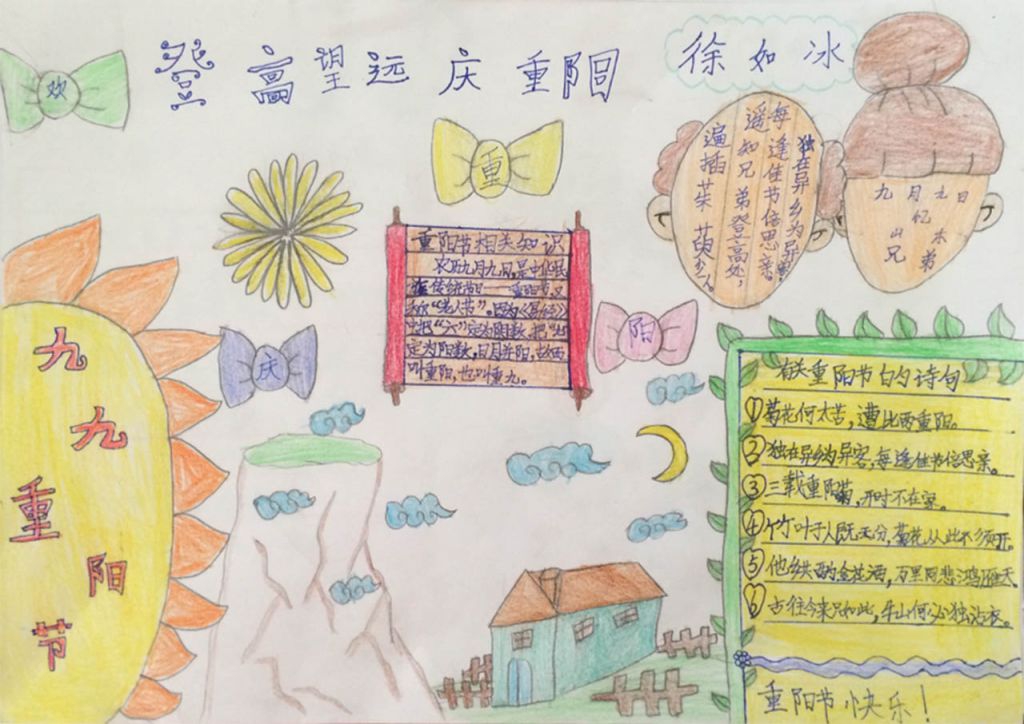 登高望远庆重阳
徐如冰
欢
重
庆
阳
九
九
重
阳
节
独在异乡为异客,
每逢佳节倍思亲。
遥知兄弟登高处,
遍插茱萸少一人
九月九日
忆
山东
兄弟
重阳节相关知识
农历九月九日,是中华民
族传统节日——重阳节,又
称“老人节”。因为《易经》
中把“六”定为阴数,把“九”
定为阳数,日月并阳,
叫重阳,也叫重九。
有关重阳节的诗句
①菊花何太苦,遭此两重阳。
②独在异乡为异客,每逢佳节倍思亲。
③三载重阳菊,开时不在家。
④竹叶于人既无分,菊花从此不须开。
⑤他乡共酌金花酒,万里同悲鸿雁天
⑥古往今来只如此,牛山何必独沾衣。
重阳节快乐!